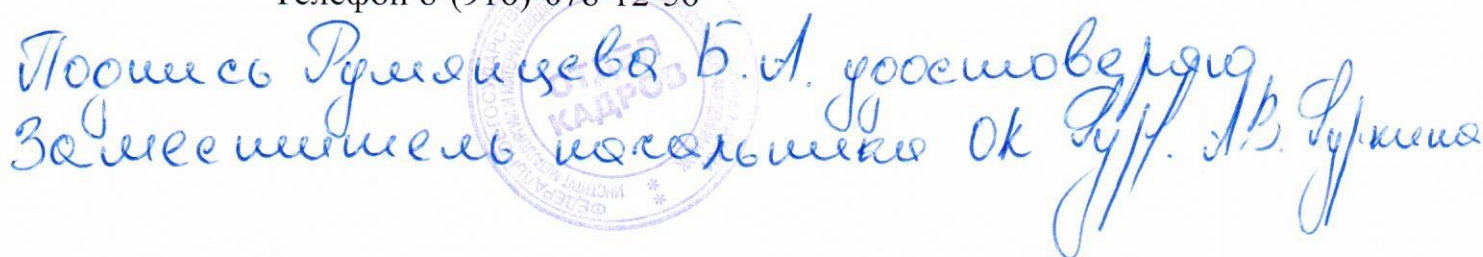 Телефон 8 (916) 678-12-56
Подпись Румянцева Б.А. удостоверяю
Заместитель начальника ОК А.В. Гуркина
ОТДЕЛ
КАДРОВ